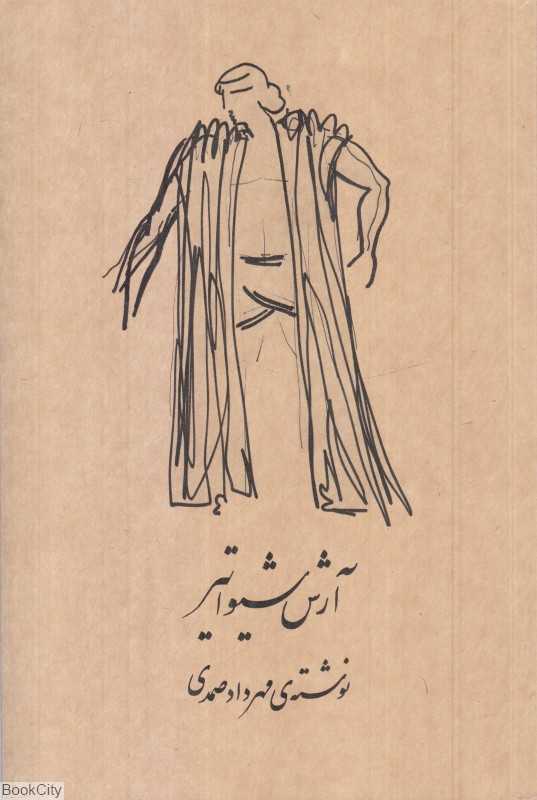 آرش شیواتیر
نوشته‌ی مهرداد صمدی
BookCity